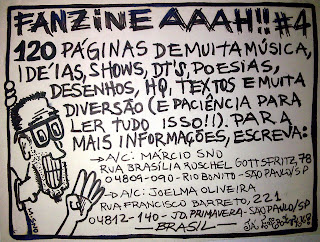 FANZINE AAAH!! #4
120 PÁGINAS DE MUITA MÚSICA,
IDÉIAS, SHOWS, DT'S, POESIAS,
DESENHOS, HQ, TEXTOS E MUITA
DIVERSÃO (E PACIÊNCIA PARA
LER TUDO ISSO!!). PARA
MAIS INFORMAÇÕES, ESCREVA:
→ A/C: MÁRCIO SNO
RUA BRASÍLIA ROSCHEL GOTTSFRITZ, 78
04809-090 - RIO BONITO - SÃO PAULO/SP
→ A/C: JOELMA OLIVEIRA
RUA FRANCISCO BARRETO, 221
04812-140 - JD. PRIMAVERA - SÃO PAULO/SP
BRASIL